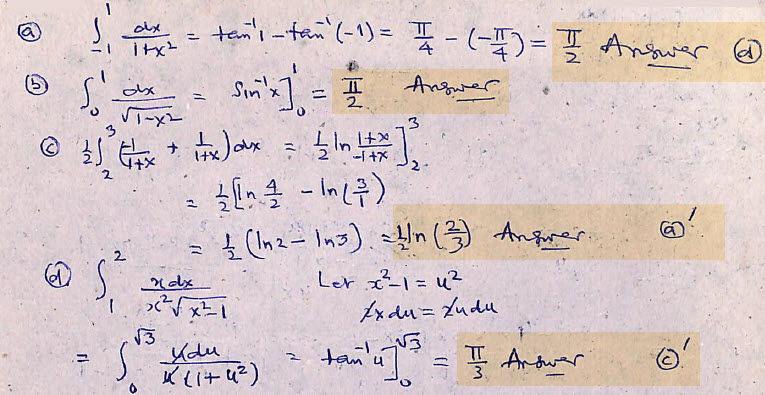 (a) ∫₋₁¹ dx/(1+x²) = tan⁻¹1 − tan⁻¹(−1) = π/4 − (−π/4) = π/2 Answer (d)
(b) ∫₀¹ dx/√(1−x²) = Sin⁻¹x]₀¹ = π/2 Answer
(c) ½∫₂³ (−1/(−1+x) + 1/(1+x))dx = ½ ln (1+x)/(−1+x)]₂³
= ½[ln 4/2 − ln(3/1)
= ½(ln2 − ln3) = ½ln(2/3) Answer (a)'
(d) ∫₁² xdx/(x²√(x²−1)) Let x²−1 = u²
2xdu = 2udu
= ∫₀^√3 udu/(u(1+u²)) = tan⁻¹u]₀^√3 = π/3 Answer (c)'